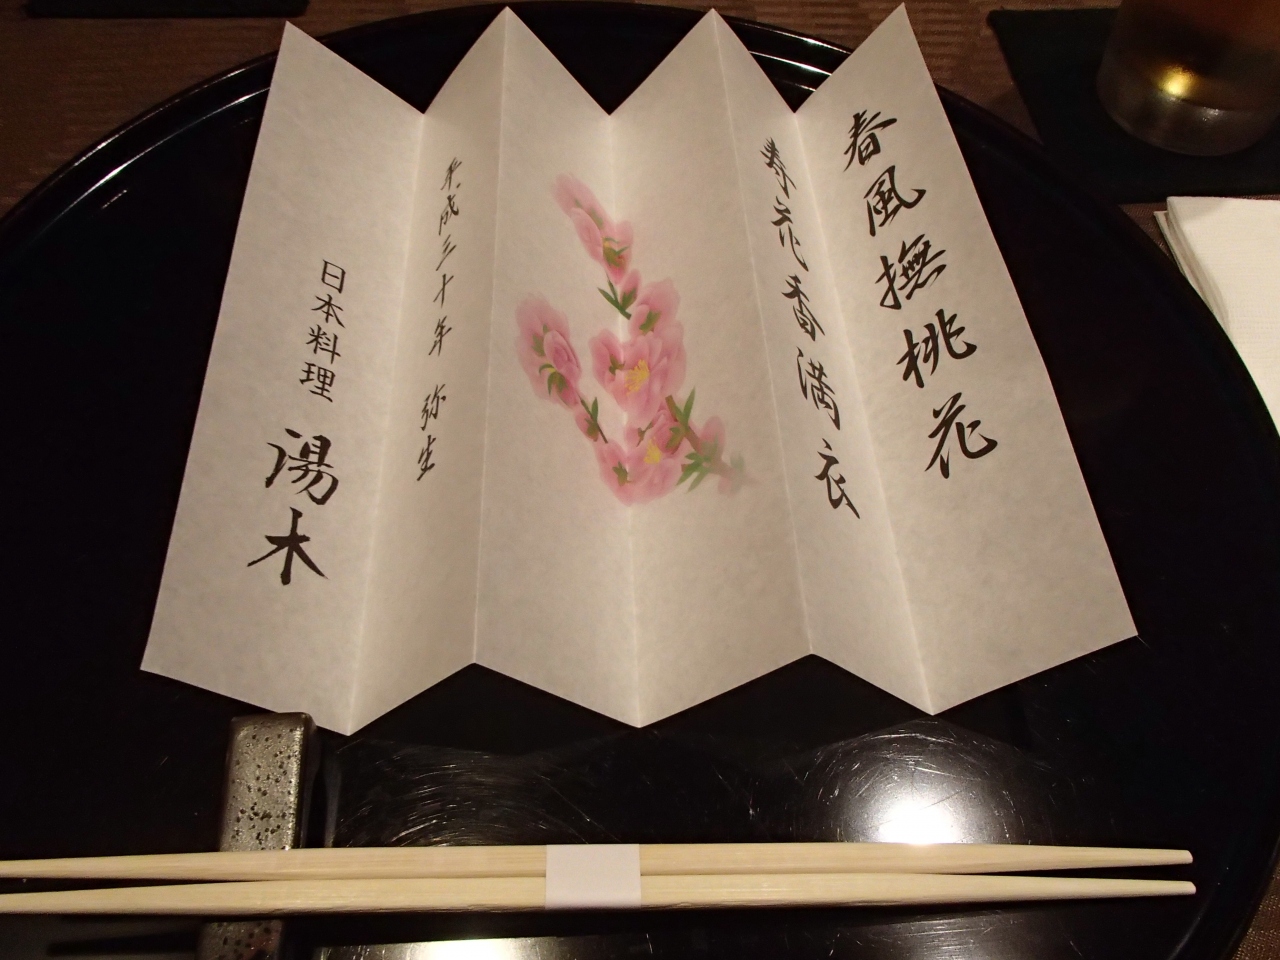 春風撫桃花
弄花香満衣
平成三十年 弥生
日本料理 湯木